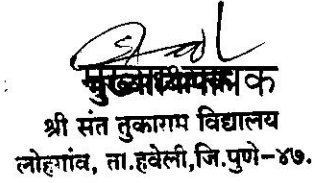 मुख्याध्यापक
श्री संत तुकाराम विद्यालय
लोहगांव, ता.हवेली,जि.पुणे-४७.